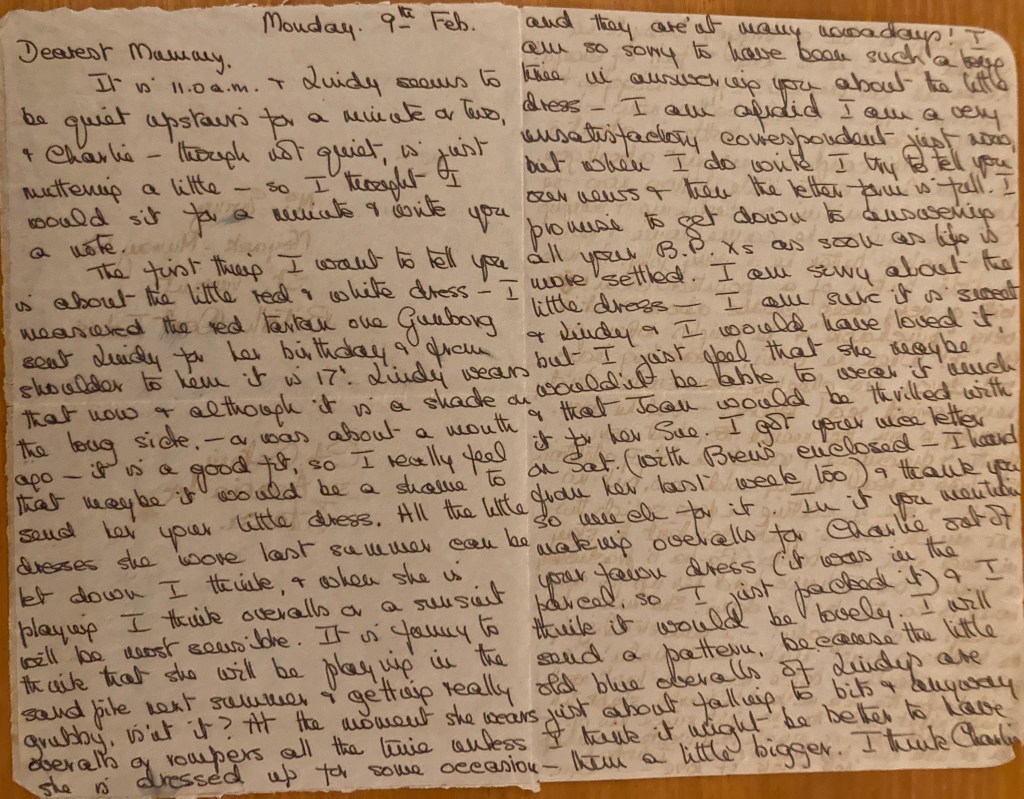 Monday. 9th Feb.
Dearest Mummy,
It is 11.0 a.m. & Lindy seems to
be quiet upstairs for a minute or two,
& Charlie – though not quiet, is just
muttering a little – so I thought I
would sit for a minute & write you
a note.
The first thing I want to tell you
is about the little red & white dress – I
measured the red tartan one Gunborg
sent Lindy for her birthday & from
shoulder to hem it is 17". Lindy wears
that now & although it is a shade on
the long side, – or was about a month
ago – it is a good fit, so I really feel
that maybe it would be a shame to
send her your little dress. All the little
dresses she wore last summer can be
let down I think, & when she is
playing I think overalls or a sunsuit
will be most sensible. It is funny to
think that she will be playing in the
sand pile next summer & getting really
grubby, is'nt it? At the moment she wears
overalls or rompers all the time unless
she is dressed up for some occasion –
and they are'nt many nowadays! I
am so sorry to have been such a long
time in answering you about the little
dress – I am afraid I am a very
unsatisfactory correspondent just now,
but when I do write I try to tell you
our news & then the letter form is full. I
promise to get down to answering
all your B.P. Xs as soon as life is
more settled. I am sorry about the
little dress – I am sure it is sweet
& Lindy & I would have loved it,
but I just feel that she maybe
would'nt be able to wear it much
& that Joan would be thrilled with
it for her Sue. I got your nice letter
on Sat. (with Brew's enclosed – I heard
from her last week too) & thank you
so much for it. In it you mention
making overalls for Charlie out of
your fawn dress (it was in the
parcel, so I just packed it) & I
think it would be lovely. I will
send a pattern, because the little
old blue overalls of Lindy's are
just about falling to bits & anyway
I think it might be better to have
them a little bigger. I think Charlie